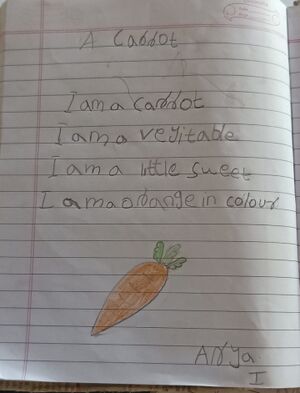 A Carrot
I am a carrot
I am a vegitable
I am a little sweet
I am a orange in colour
Arya
I